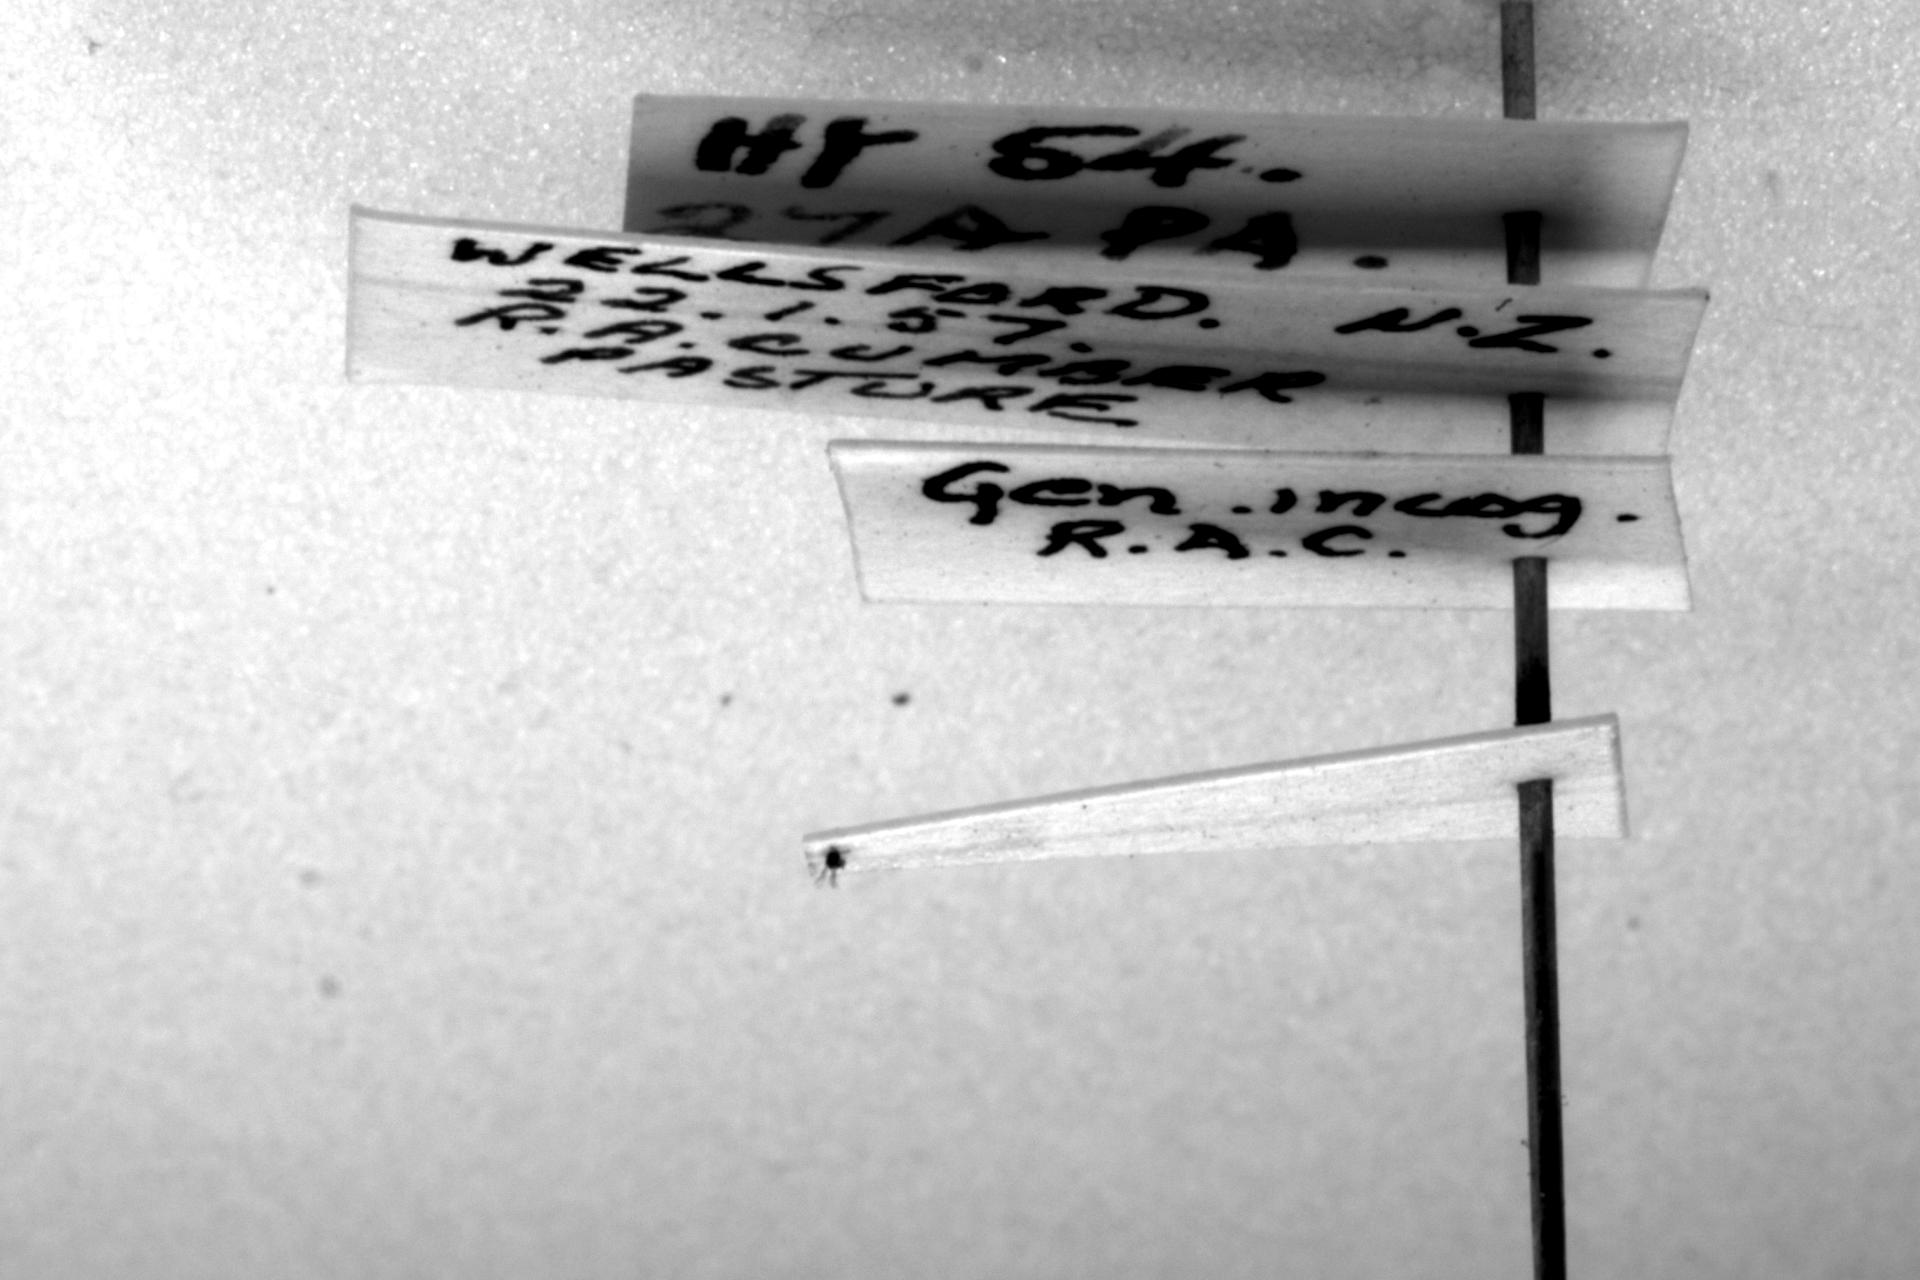 HY 54.
27A PA.
WELLSFORD. N.Z.
22.1.57.
R.A. CUMBER
PASTURE
Gen. incog.
R.A.C.